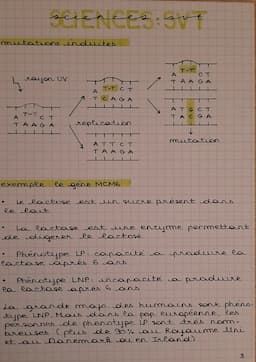 SCIENCES: SVT
mutations induites
rayon UV
A T-T C T
T A A G A
réplication
A T-T C T
T C A G A
A T T C T
T A A G A
A T-T C T
T A A G A
A T G C T
T A C G A
mutation
exemple le gène MCM6
• le lactose est un sucre présent dans
le lait
• La lactase est une enzyme permettant
de digérer le lactose
• Phénotype LP: capacité a produire la
lactase après 6 ans
• Phénotype LNP: incapacité a produire
la lactase après 6 ans
La grande maj. des humains sont phéno-
type LNP. Mais dans la pop européenne, les
personnes de phénotype LP sont très nom-
breuses ( plus de 90% au Royaume Uni
et au Danemark ou en Irland)
3